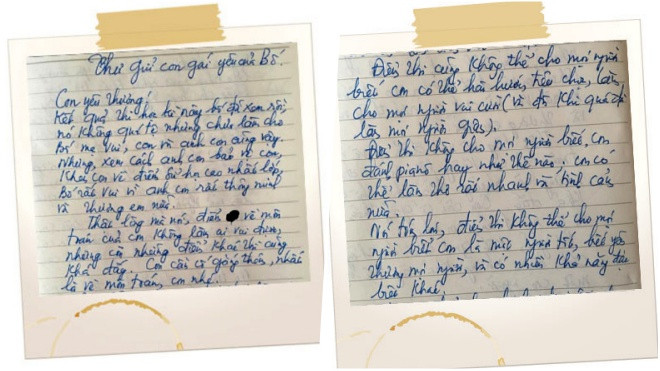 Thư gửi con gái yêu của Bố.
Con yêu thương!
Kết quả thi học kỳ này bố đã xem rồi,
nó không quá tệ nhưng chưa làm cho
Bố mẹ vui, con và anh con cũng vậy.
Nhưng, xem cách anh con bảo vệ con,
khoe con về điểm bơi cao nhất lớp,
Bố rất vui vì anh con rất thông minh
và thương em nữa.
Thật lòng mà nói, điểm về môn
toán của con không làm ai vui được,
nhưng còn những điểm khác thì cũng
khá đấy. Con cần cố gắng thêm, nhất
là về môn toán, con nhé.
Điểm thi cũng không thể cho mọi người
biết con có thể hài hước, tiếu chọc, làm
cho mọi người vui cười (và đôi khi quá đà
làm mọi người giận).
Điểm thi không cho mọi người biết, con
đánh pianô hay như thế nào, con có
thể làm thơ rất nhanh và tình cảm
nữa.
Nói tóm lại, điểm thi không thể cho mọi
người biết con là một người tốt, biết yêu
thương mọi người, và có nhiều khả năng đặc
biệt khác.